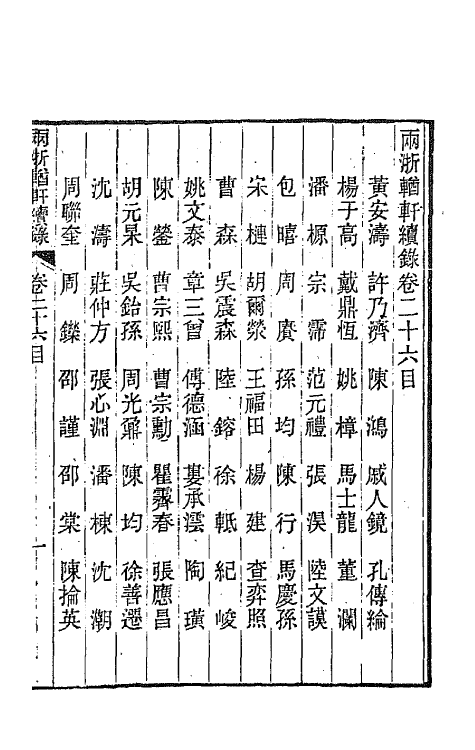 兩浙輶軒續錄卷二十六目
黃安濤 許乃濟 陳鴻 戚人鏡 孔傳綸
楊于高 戴鼎恆 姚樟 馬士龍 董瀾
潘梡 宗霈 范元禮 張淏 陸文謨
包暿 周賡 孫均 陳行 馬慶孫
宋槤 胡爾滎 王福田 楊建 查弈照
曹森 吳震森 陸鎔 徐軝 紀峻
姚文泰 章三曾 傅德涵 婁承澐 陶璜
陳鎣 曹宗熙 曹宗勳 瞿霱春 張應昌
胡元杲 吳鈶孫 周光鼐 陳均 徐善遷
沈濤 莊仲方 張心淵 潘棟 沈潮
周聯奎 周鑅 邵謹 邵棠 陳掄英
兩浙輶軒續錄 卷二十六目 一